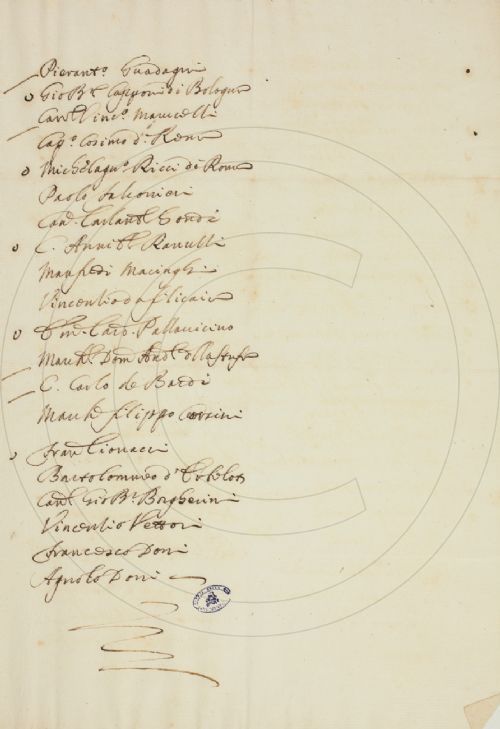 Pierant.º Guadagni
Gio Bt.ª Capponi di Bologna
Cav.re Vinc.º Marucelli
Cap.º Cosimo d'
Michelagn.º Ricci di Roma
Paolo falconieri
Cav. Carlant.º Gondi
C. Annib.e Ranucci
Manfredi Macinghi
Vincentio da filicaia
Em. Card. Pallavicino
March.e Dom And.
C. Carlo de Bardi
March.e filippo Corsini
fran.co Cionacci
Bartolommeo d'
Cav.re Gio B.ª Borgherini
Vincentio Vettori
francesco Doni
Agnolo Doni